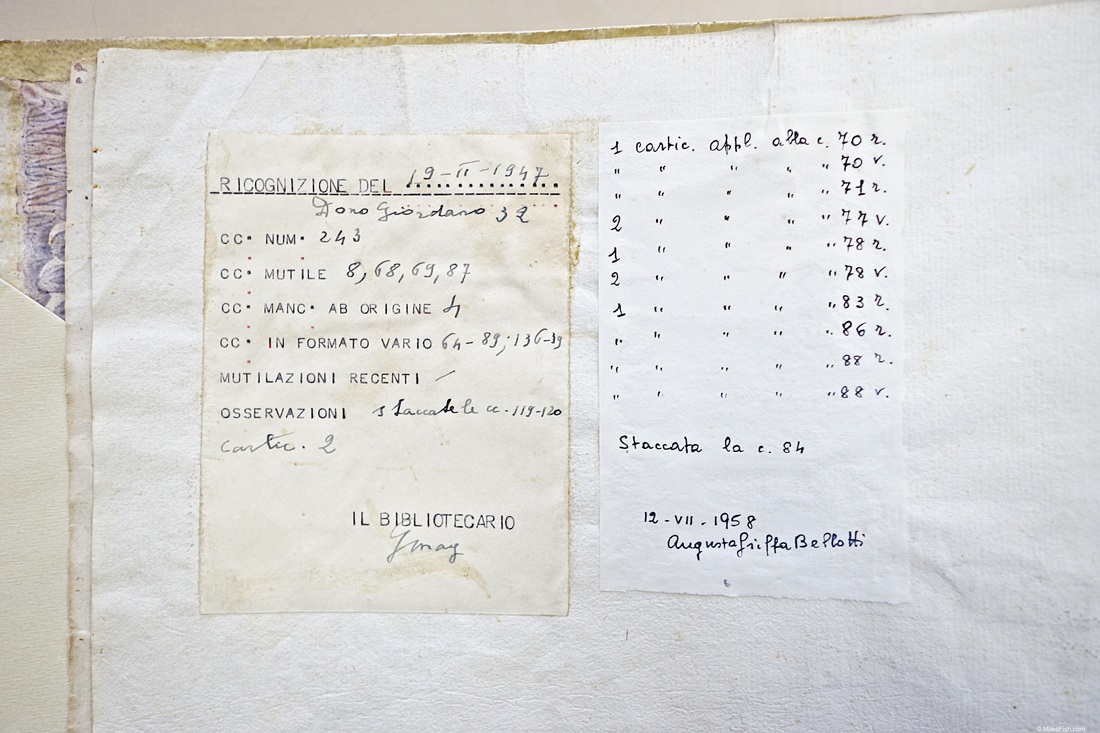 RICOGNIZIONE DEL 19-II-1947
Dono Giordano 32
CC. NUM. 243
CC. MUTILE 8, 68, 69, 87
CC. MANC. AB ORIGINE 4
CC. IN FORMATO VARIO 64-89; 136-39
MUTILAZIONI RECENTI /
OSSERVAZIONI staccate le cc. 119-120
Cartic. 2
IL BIBLIOTECARIO
1 cartic. appl. alla c. 70 r.
" " " " " 70 v.
" " " " " 71 r.
2 " " " " 77 v.
1 " " " " 78 r.
2 " " " " 78 v.
1 " " " " 83 r.
" " " " " 86 r.
" " " " " 88 r.
" " " " " 88 v.
Staccata la c. 84
12-VII-1958
Augusta Griffa Bellotti
© MilesFish.com